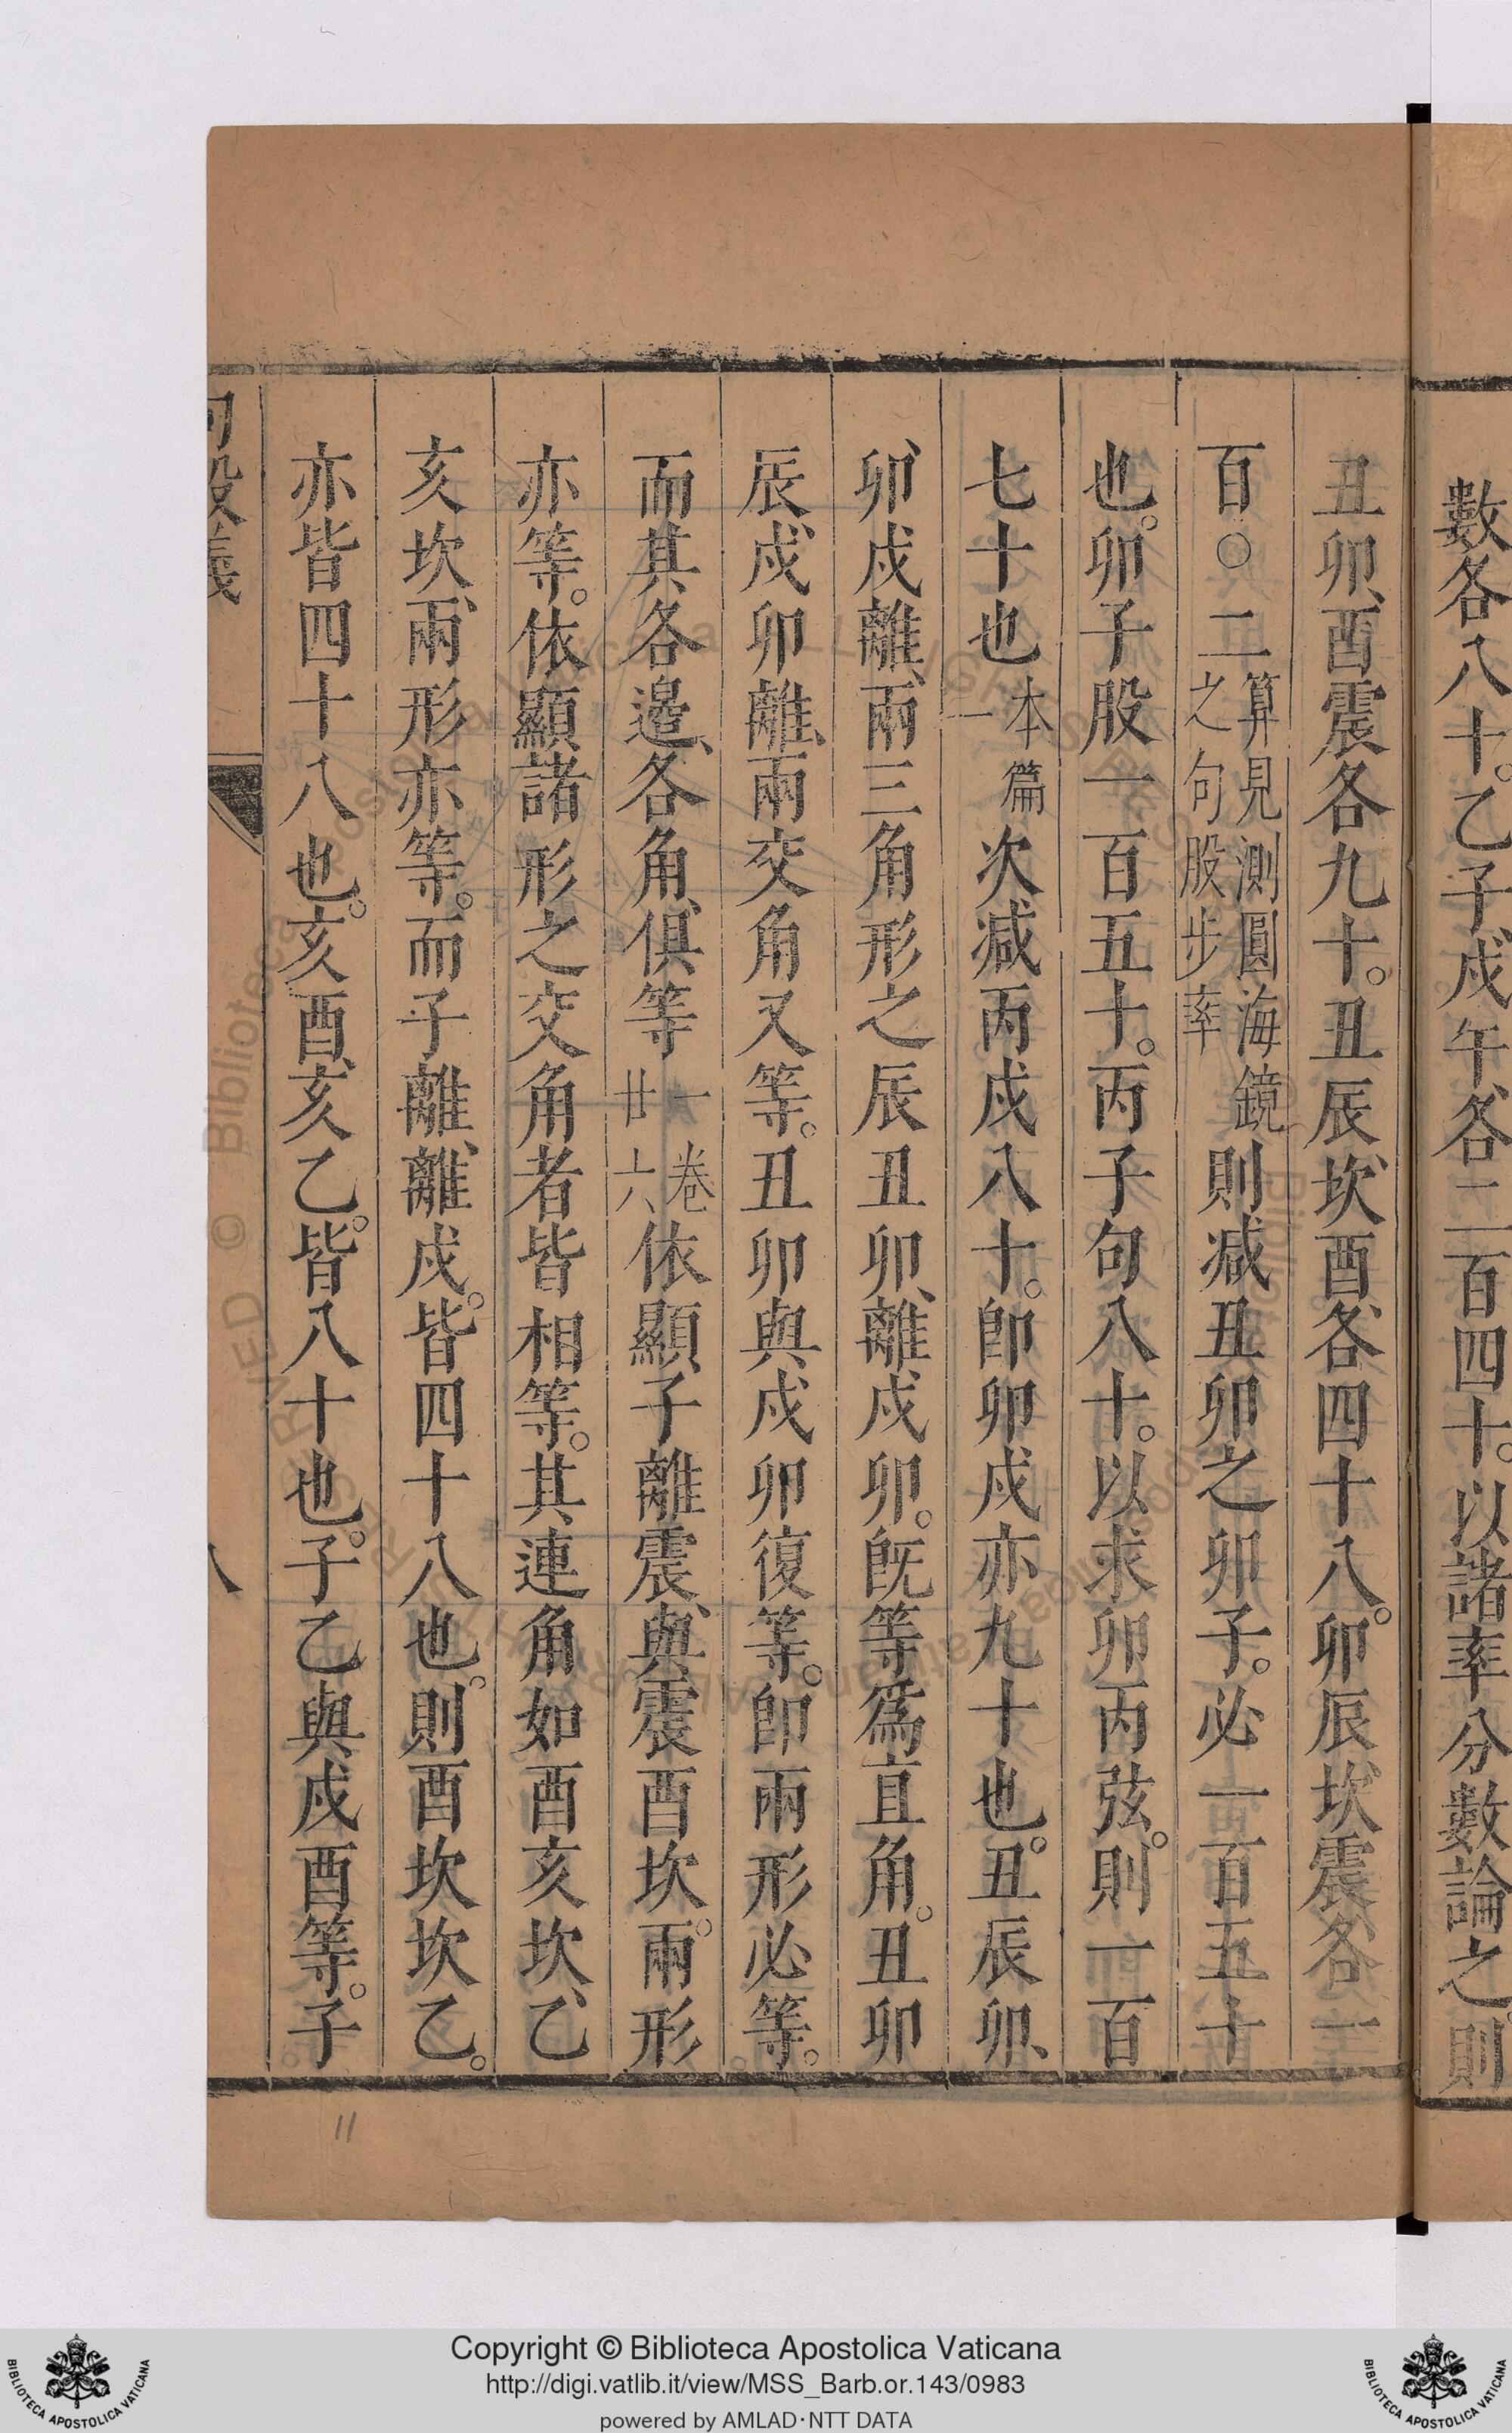 數各八十。乙子、戍午、各二百四十。以諸率分數論之。則
丑卯、酉震各九十。丑辰、坎酉、各四十八。卯辰、坎震、各一
百〇二算見測圓海鏡之句股步率則減丑卯之卯子。必一百五十
也。卯子股一百五十。丙子句八十。以求卯丙弦。則一百
七十也本篇一次減丙戍八十。卽卯戍亦九十也。丑辰卯、
卯戍離、兩三角形之辰丑卯、離戍卯。旣等爲直角。丑卯
辰、戍卯離、兩交角又等。丑卯與戍卯復等。卽兩形必等。
而其各邉、各角、俱等一卷廿六依顯子離震、與震酉坎。兩形
亦等。依顯諸形之交角者皆相等。其連角如酉亥坎、乙
亥坎、兩形亦等。而子離、離戍。皆四十八也。則酉坎坎乙。
亦皆四十八也。亥酉、亥乙。皆八十也。子乙與戍酉等。子
句股義
八
11
Copyright © Biblioteca Apostolica Vaticana
http://digi.vatlib.it/view/MSS_Barb.or.143/0983
powered by AMLAD·NTT DATA
BIBLIOTECA APOSTOLICA VATICANA
BIBLIOTECA APOSTOLICA VATICANA